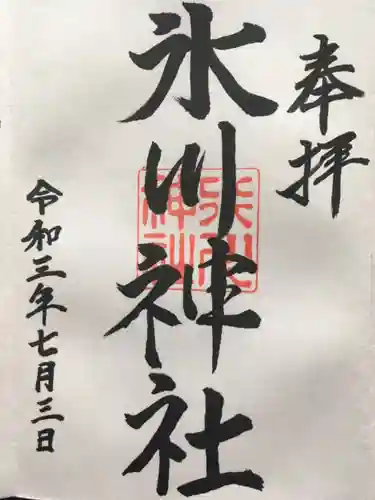 奉拝
氷川神社
氷川神社
令和三年七月三日